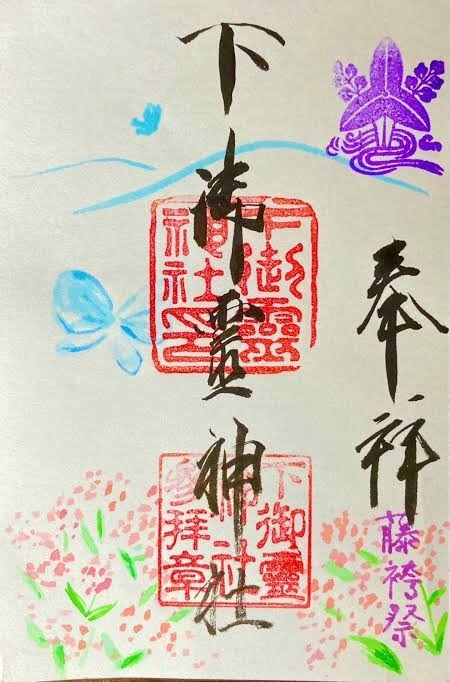 奉拝
藤袴祭
下御霊神社
下御靈
神社印
下御靈
神社
参拝章